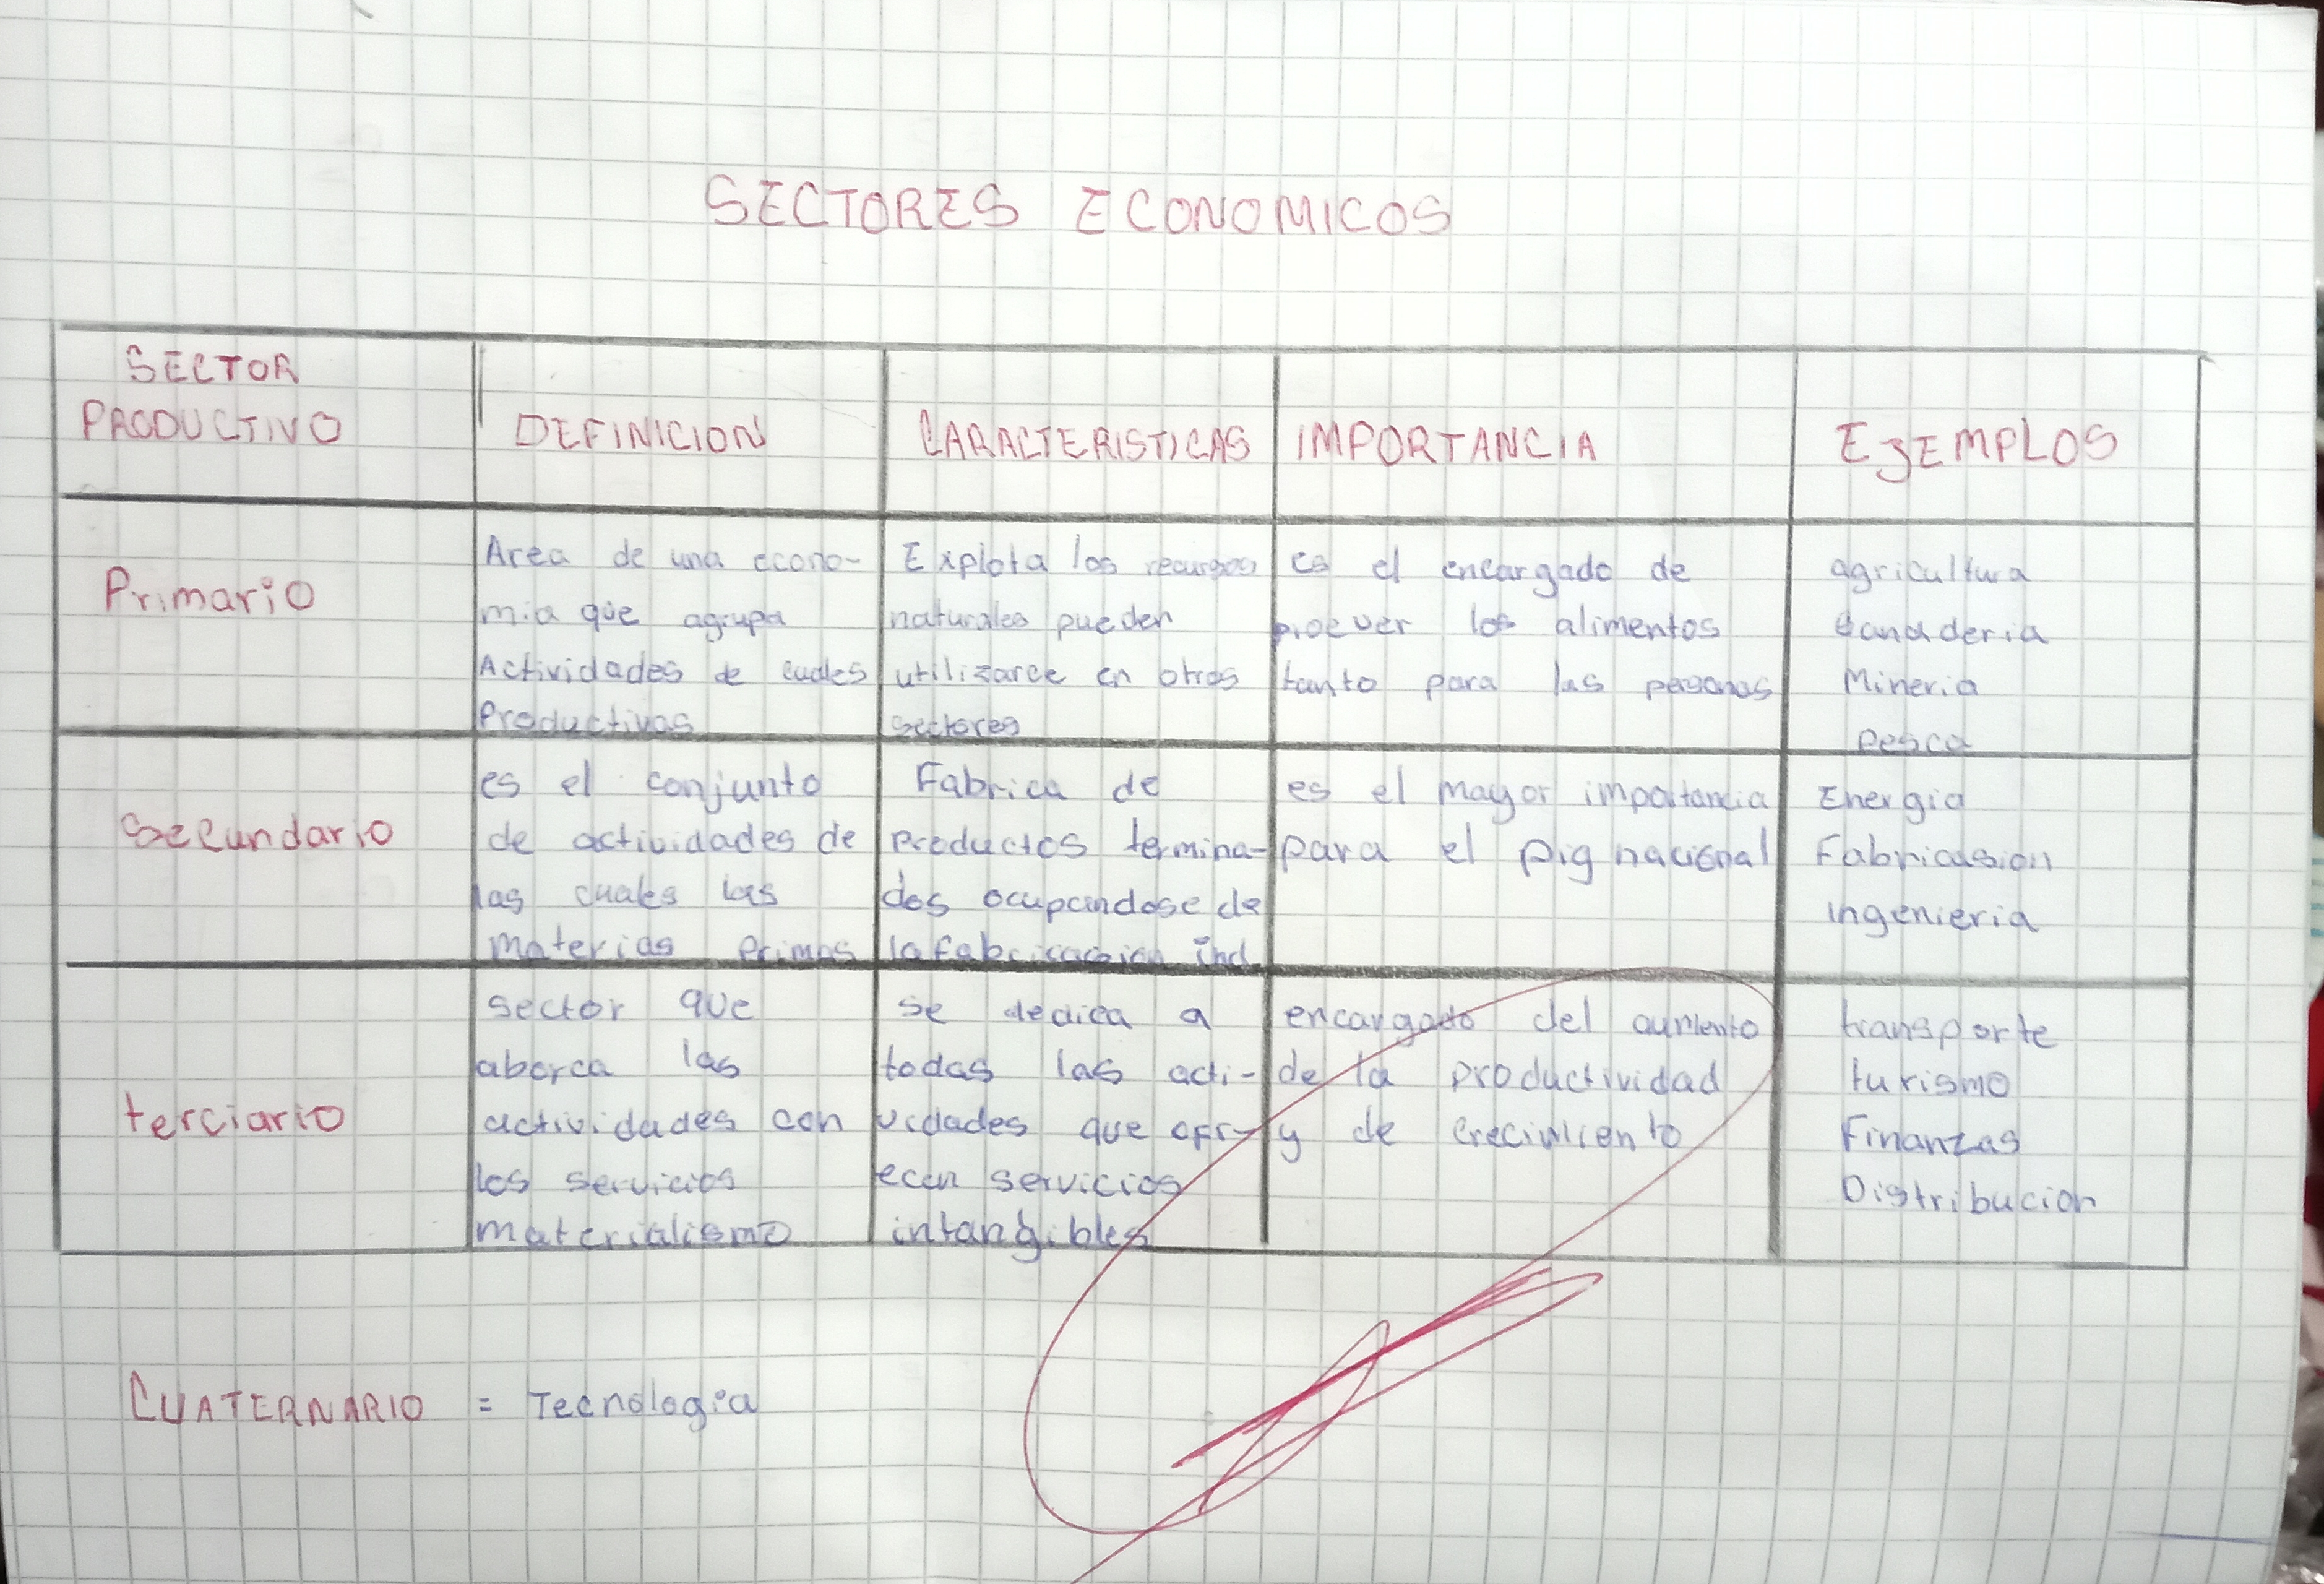 SECTORES ECONOMICOS
SECTOR
PRODUCTIVO
DEFINICION
CARACTERISTICAS
IMPORTANCIA
EJEMPLOS
Primario
Area de una econo-
mia que agrupa
Actividades de cuales
Productivas
Explota los recursos
naturales pueden
utilizarce en otros
sectores
es el encargado de
proever los alimentos
tanto para las personas
agricultura
Ganaderia
Mineria
Pesca
Secundario
es el conjunto
de actividades de
las cuales las
materias primas
Fabrica de
productos termina-
dos ocupandose de
la fabricacion ind.
es el mayor importancia
para el pig nacional
Energia
Fabricasion
ingenieria
terciario
sector que
aborca las
actividades con
los servicios
materialismo
se dedica a
todas las acti-
vidades que ofr-
ecen servicios
intangibles
encargado del aumento
de la productividad
y de crecimiento
transporte
turismo
Finanzas
Distribucion
CUATERNARIO = Tecnologia